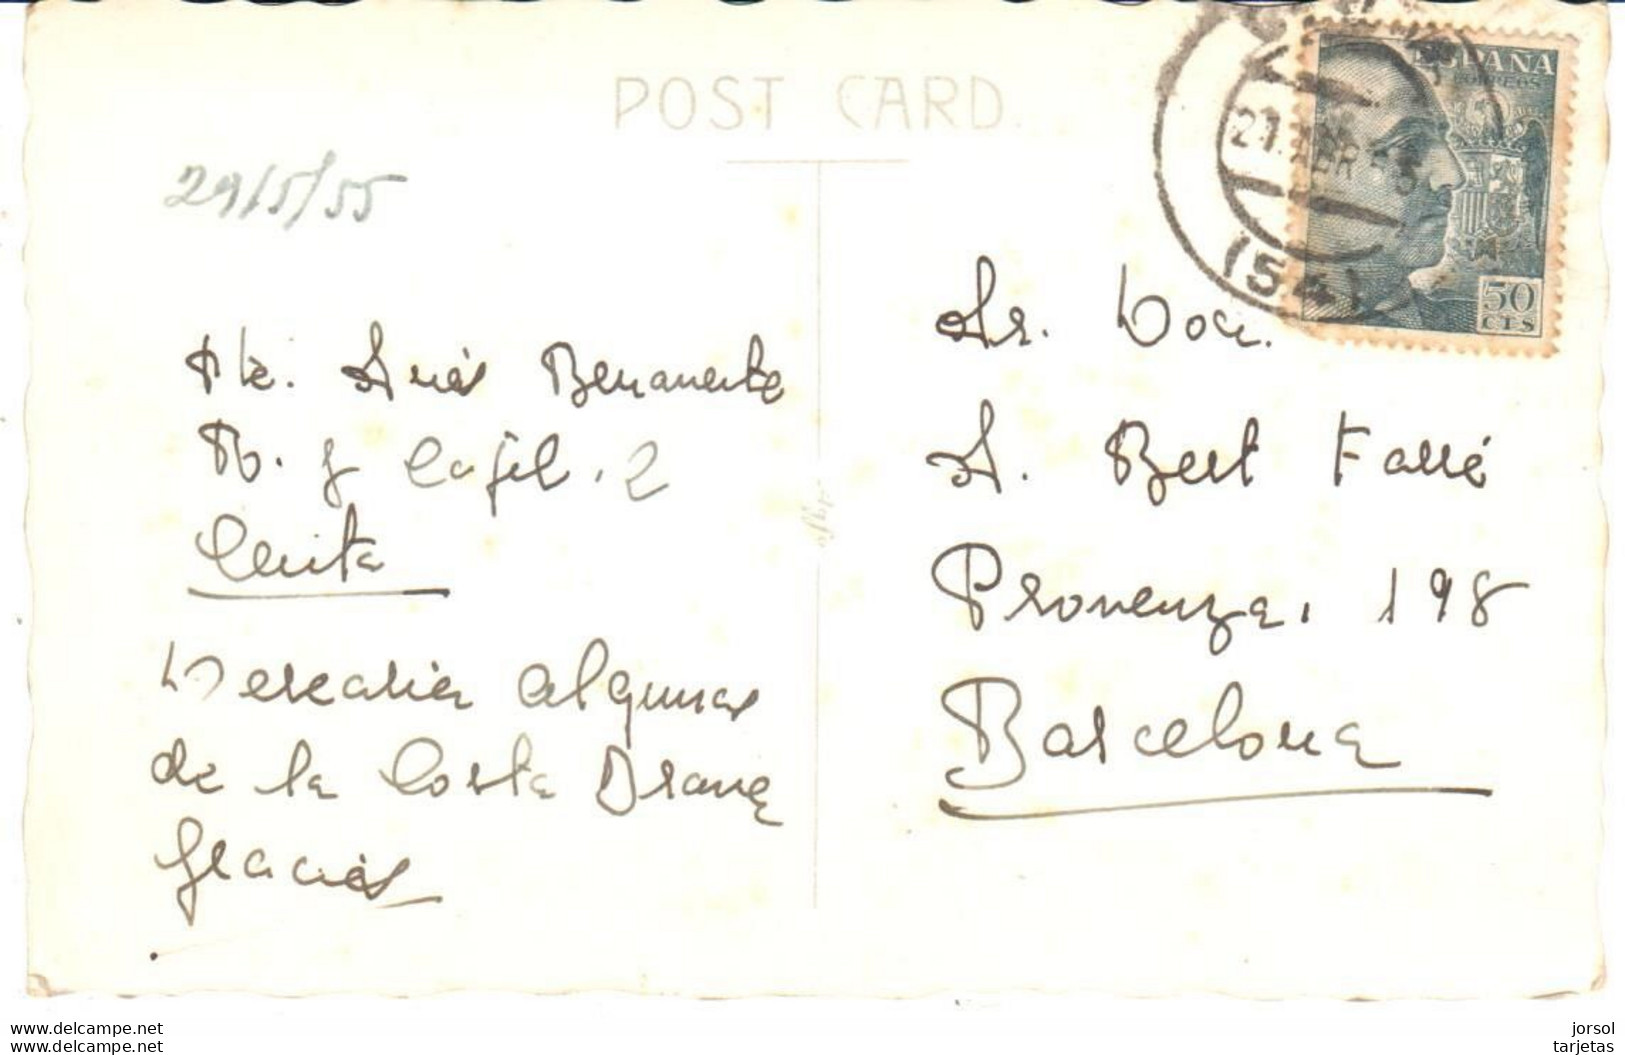 POST CARD
29/5/55
ESPAÑA
CORREOS
21 ABR 55
(54)
50
CTS
Rte. Arias Benavente
R. y Cajal. 2
Ceuta
Desearia algunas
de la Costa Brava
Gracias
Sr. Don.
A. Bert Farré
Provenza. 198
Barcelona
www.delcampe.net
www.delcampe.net
jorsol
tarjetas